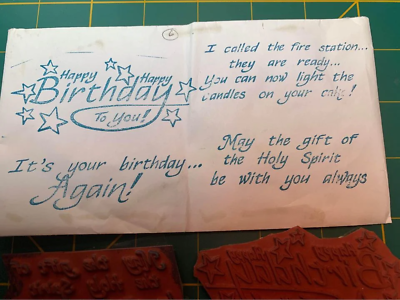 6
Happy Happy
Birthday
To You!
I called the fire station...
they are ready...
you can now light the
candles on your cake!
It's your birthday...
Again!
May the gift of
the Holy Spirit
be with you always